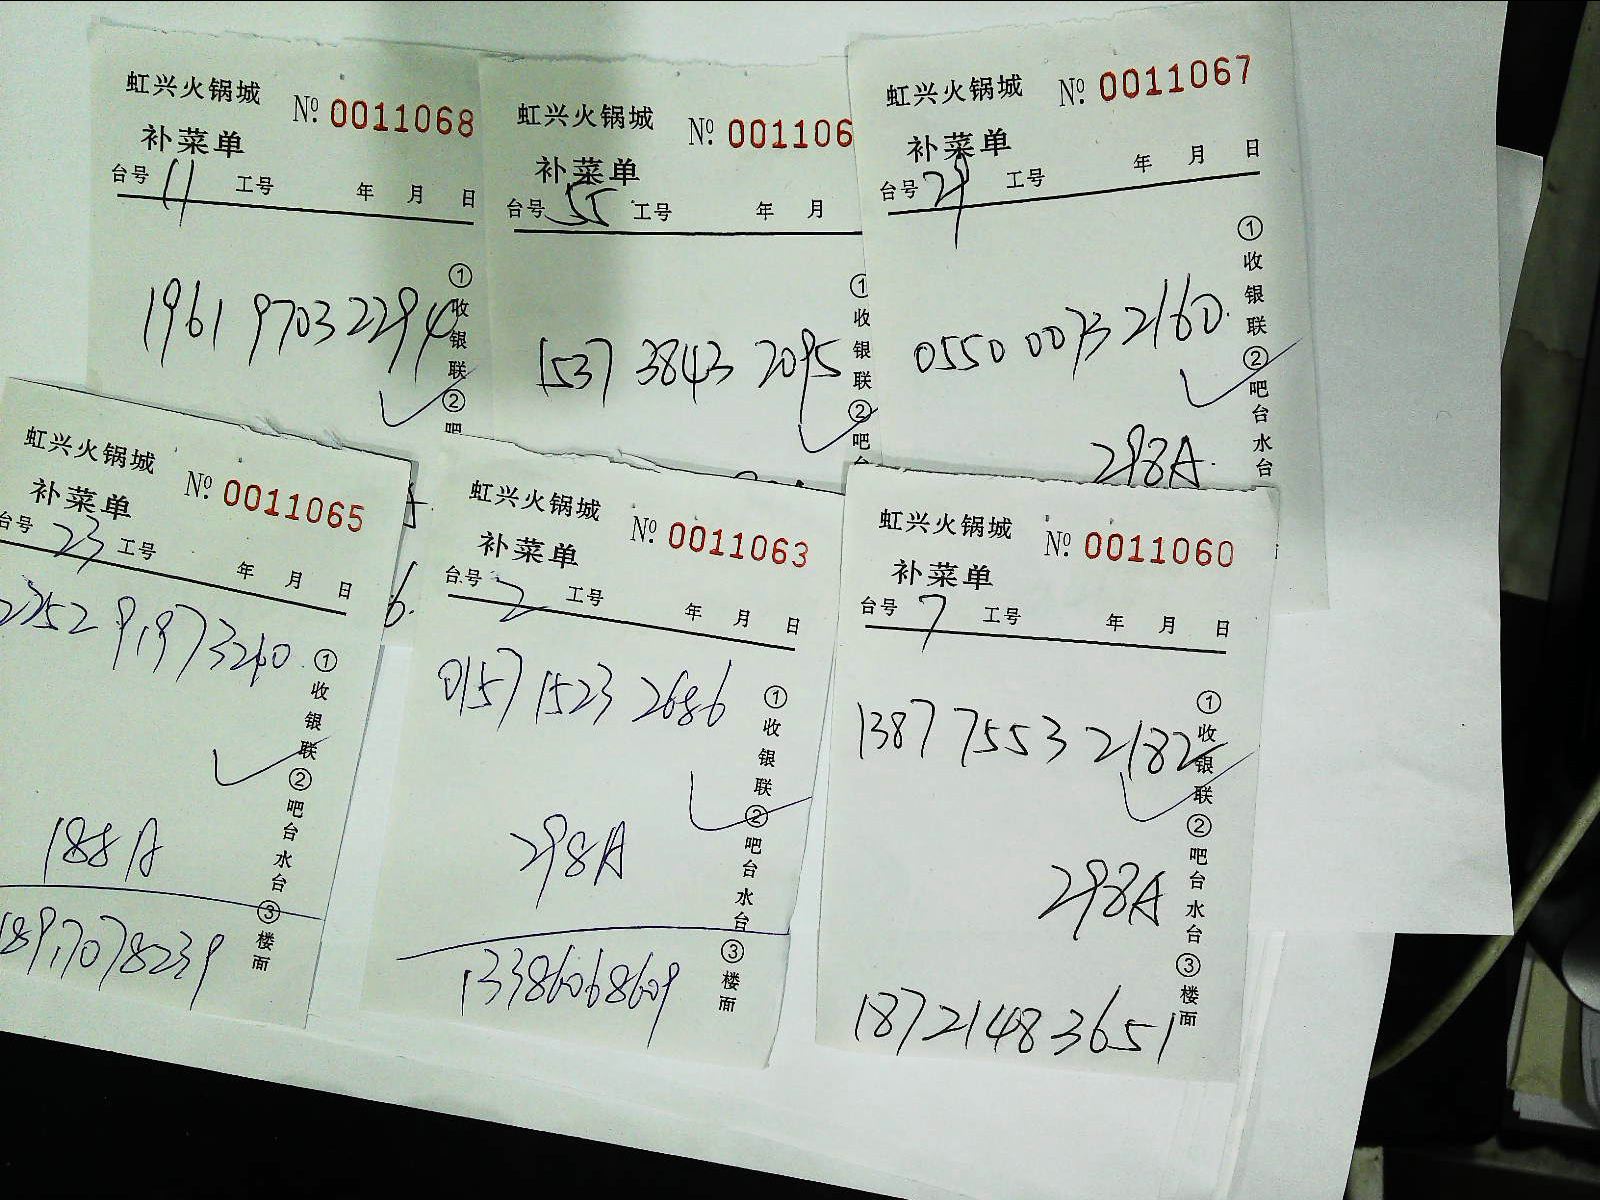 虹兴火锅城 Nº. 0011068
补菜单
台号 11 工号 年 月 日
1961 9703 2294
①收银联②吧
虹兴火锅城 Nº. 001106
补菜单
台号 55 工号 年 月
1537 3843 2095
①收银联②吧台
虹兴火锅城 Nº. 0011067
补菜单
台号 29 工号 年 月 日
0550 0073 2160.
298A.
①收银联②吧台水台
虹兴火锅城 Nº. 0011065
补菜单
台号 23 工号 年 月 日
2352 9197 3260.
188A
18917078239
①收银联②吧台水台③楼面
虹兴火锅城 Nº. 0011063
补菜单
台号 2 工号 年 月 日
0157 1523 2686
298A
13386068609
①收银联②吧台水台③楼面
虹兴火锅城 Nº. 0011060
补菜单
台号 7 工号 年 月 日
1387 7553 2182
298A
18721483651
①收银联②吧台水台③楼面